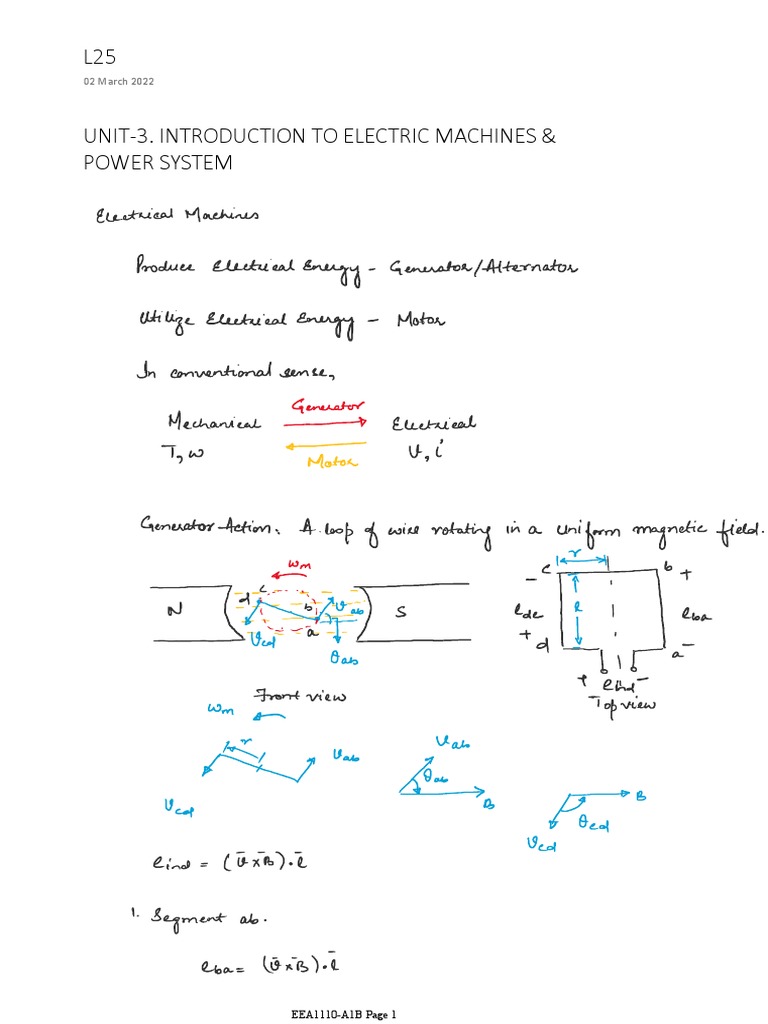 L25
02 March 2022
UNIT-3. INTRODUCTION TO ELECTRIC MACHINES &
POWER SYSTEM
Electrical Machines
Produce Electrical Energy - Generator/Alternator
Utilize Electrical Energy - Motor
In conventional sense,
Generator
Mechanical Electrical
T, ω v, i
Motor
Generator Action: A loop of wire rotating in a uniform magnetic field.
ωm
N d c b a v_ab S
v_cd θ_ab
r
- c b +
e_dc l e_ba
+ d a -
+ e_ind -
Front view
Top view
ωm
r v_ab
v_cd
v_ab
θ_ab
B
B
θ_cd
v_cd
e_ind = (v̄ × B̄) · l̄
1. Segment ab.
e_ba = (v̄ × B̄) · l̄
EEA1110-A1B Page 1